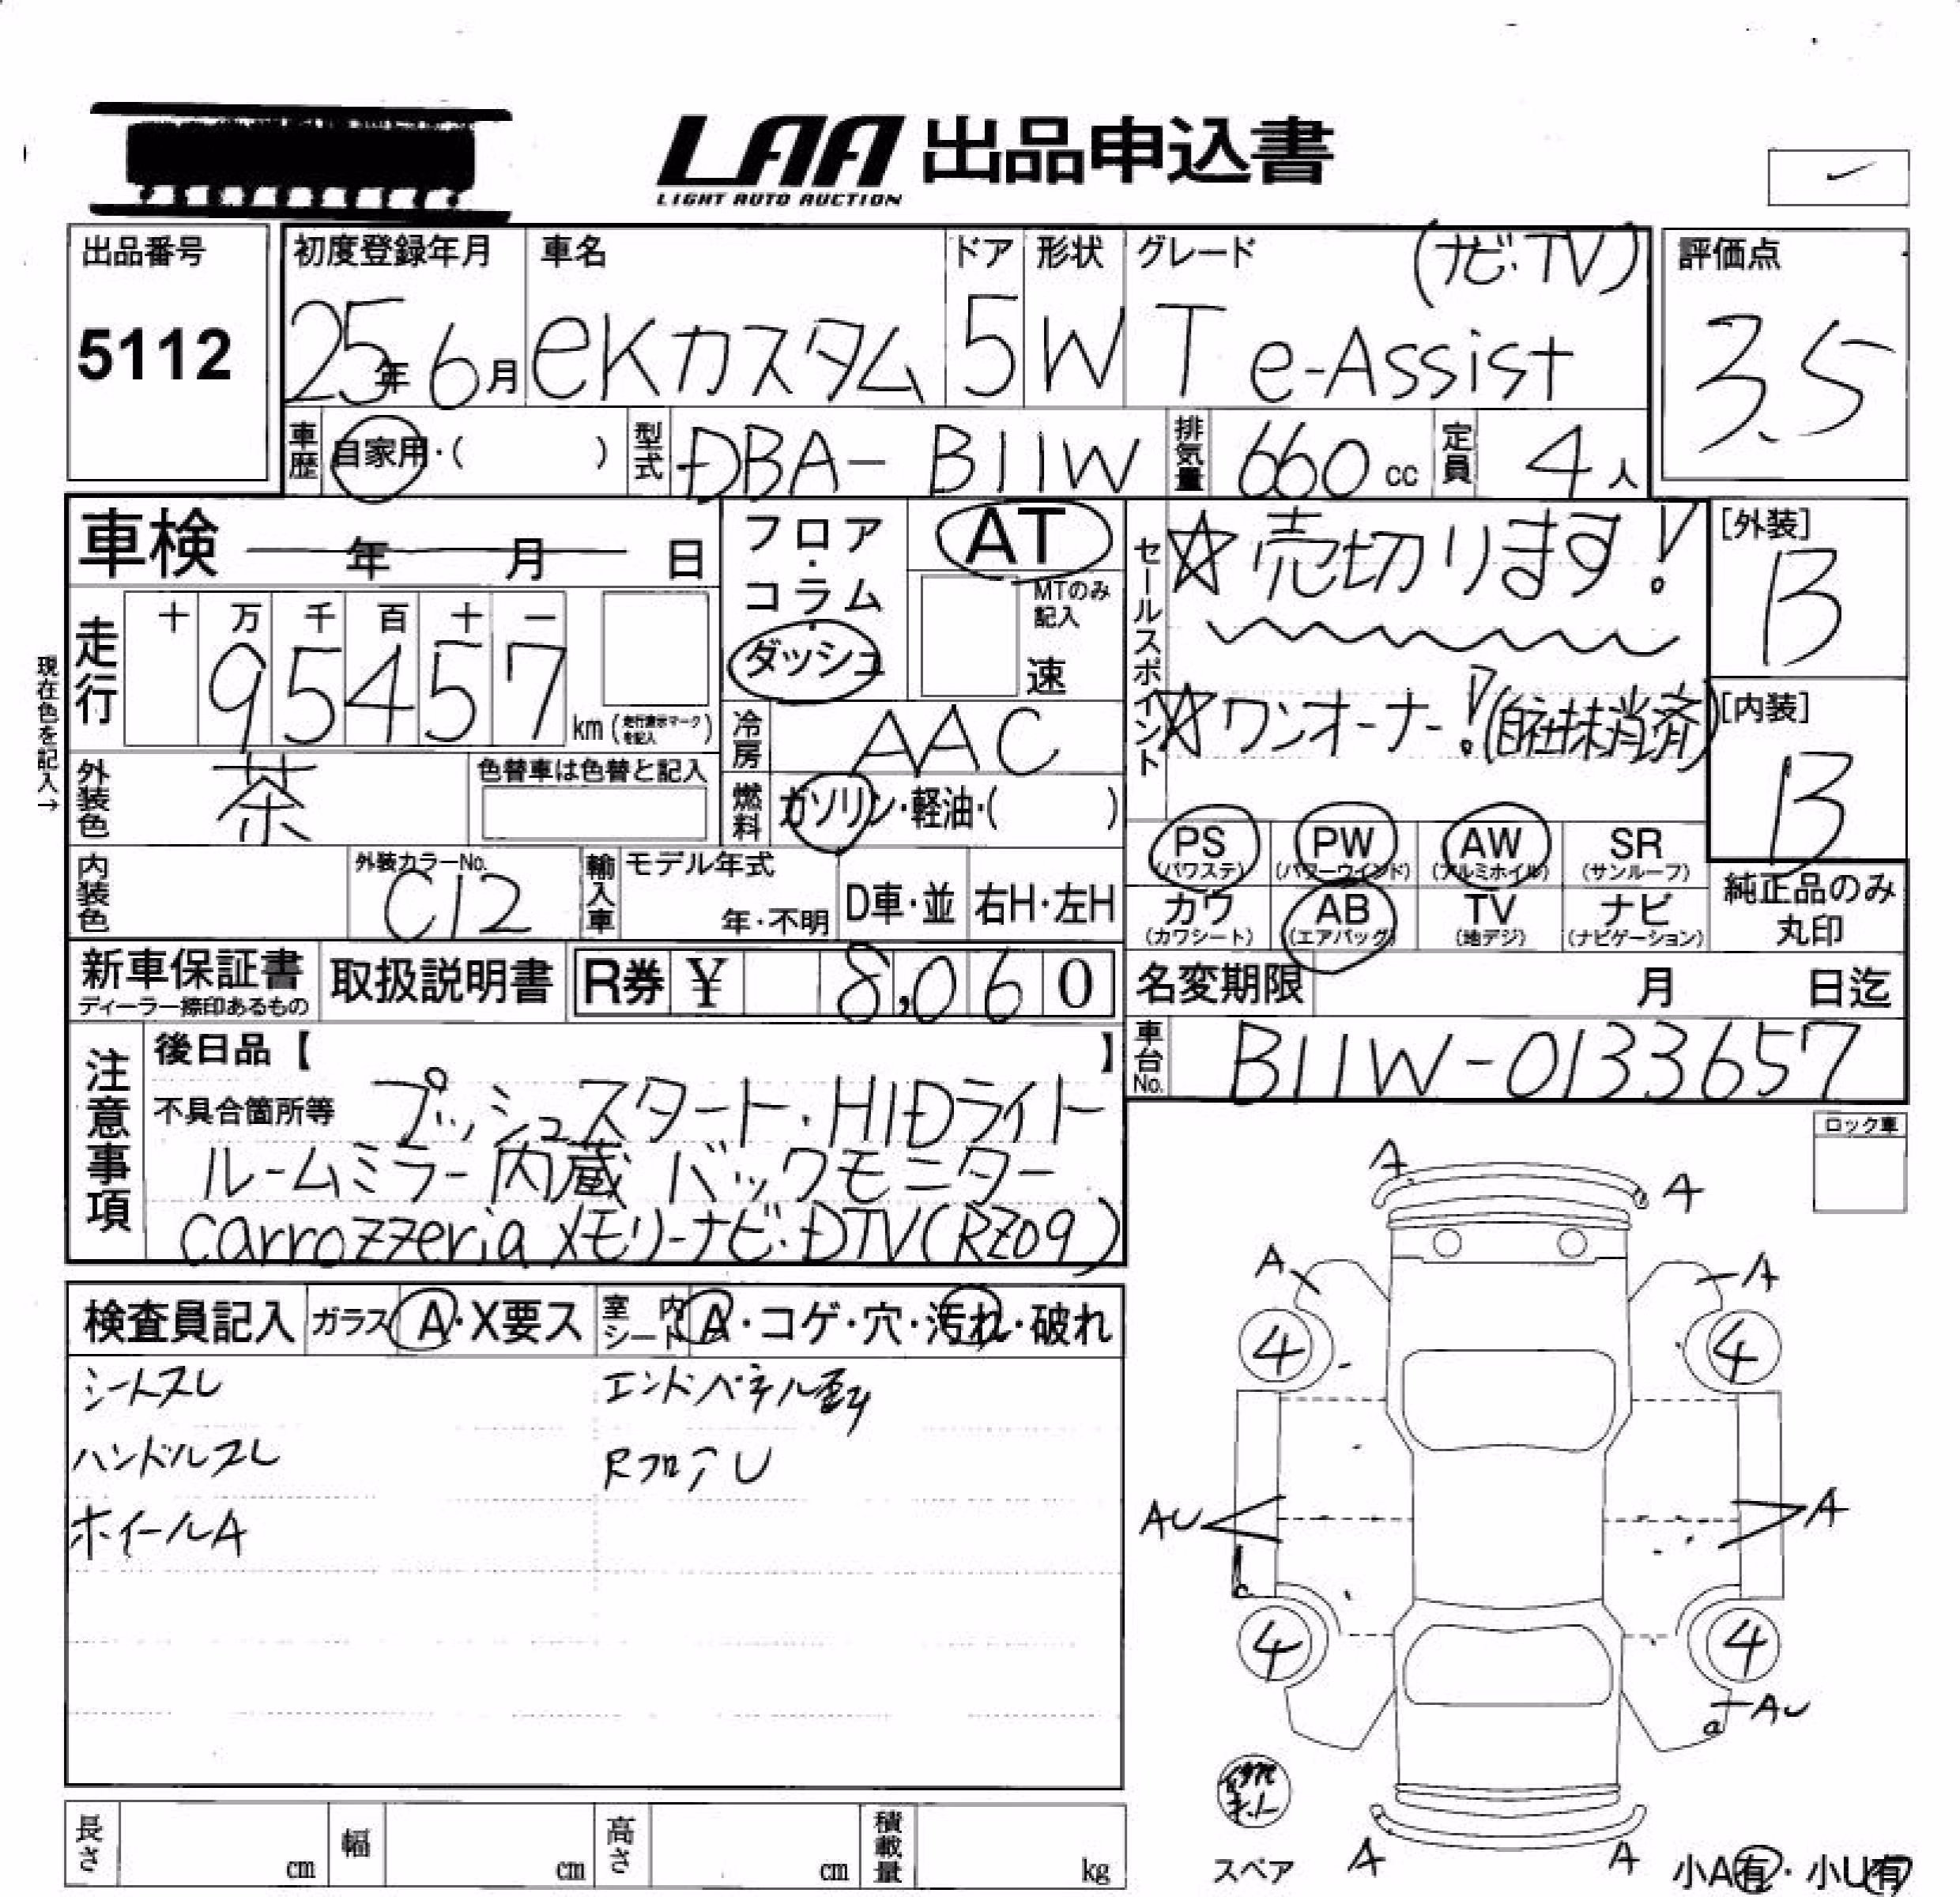 LAA 出品申込書
LIGHT AUTO AUCTION
出品番号
5112
初度登録年月
25年6月
車名
eKカスタム
ドア
5
形状
W
グレード
(ナビ.TV)
T e-Assist
評価点
3.5
車歴
自家用・( )
型式
DBA- B11W
排気量
660cc
定員
4人
車検 年 月 日
フロア・コラム・ダッシュ
AT
MTのみ記入
速
セールスポイント
☆売切ります!
☆ワンオーナー!(自社抹消済)
[外装]
B
[内装]
B
現在色を記入→
走行
十 万 千 百 十 一
95457
km(走行表示マークを記入)
冷房
AAC
外装色
茶
色替車は色替と記入
燃料
ガソリン・軽油・( )
内装色
外装カラーNo.
C12
輸入車
モデル年式
年・不明
D車・並
右H・左H
PS
(パワステ)
PW
(パワーウインド)
AW
(アルミホイル)
SR
(サンルーフ)
カワ
(カワシート)
AB
(エアバッグ)
TV
(地デジ)
ナビ
(ナビゲーション)
純正品のみ
丸印
新車保証書
ディーラー捺印あるもの
取扱説明書
R券 ¥ 8,060
名変期限 月 日迄
車台No.
B11W-0133657
注意事項
後日品【 】
不具合箇所等 プッシュスタート・HIDライト
ルームミラー内蔵 バックモニター
carrozzeria メモリーナビ・DTV(RZ09)
ロック車
検査員記入
ガラス
A・X要ス
室内
シート
A・コゲ・穴・汚れ・破れ
シートスレ
ハンドルスレ
ホイールA
エンドパネル歪み
RフロアU
A
A
A
A
4
4
AU
A
4
4
AU
a
修理キット
スペア
A
A
小A有・小U有
長さ cm
幅 cm
高さ cm
積載量 kg